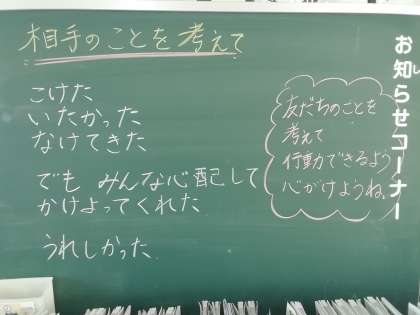 相手のことを考えて
こけた
いたかった
なけてきた
でも みんな心配して
かけよってくれた
うれしかった
友だちのことを
考えて
行動できるよう
心がけようね。
お知らせコーナー
し